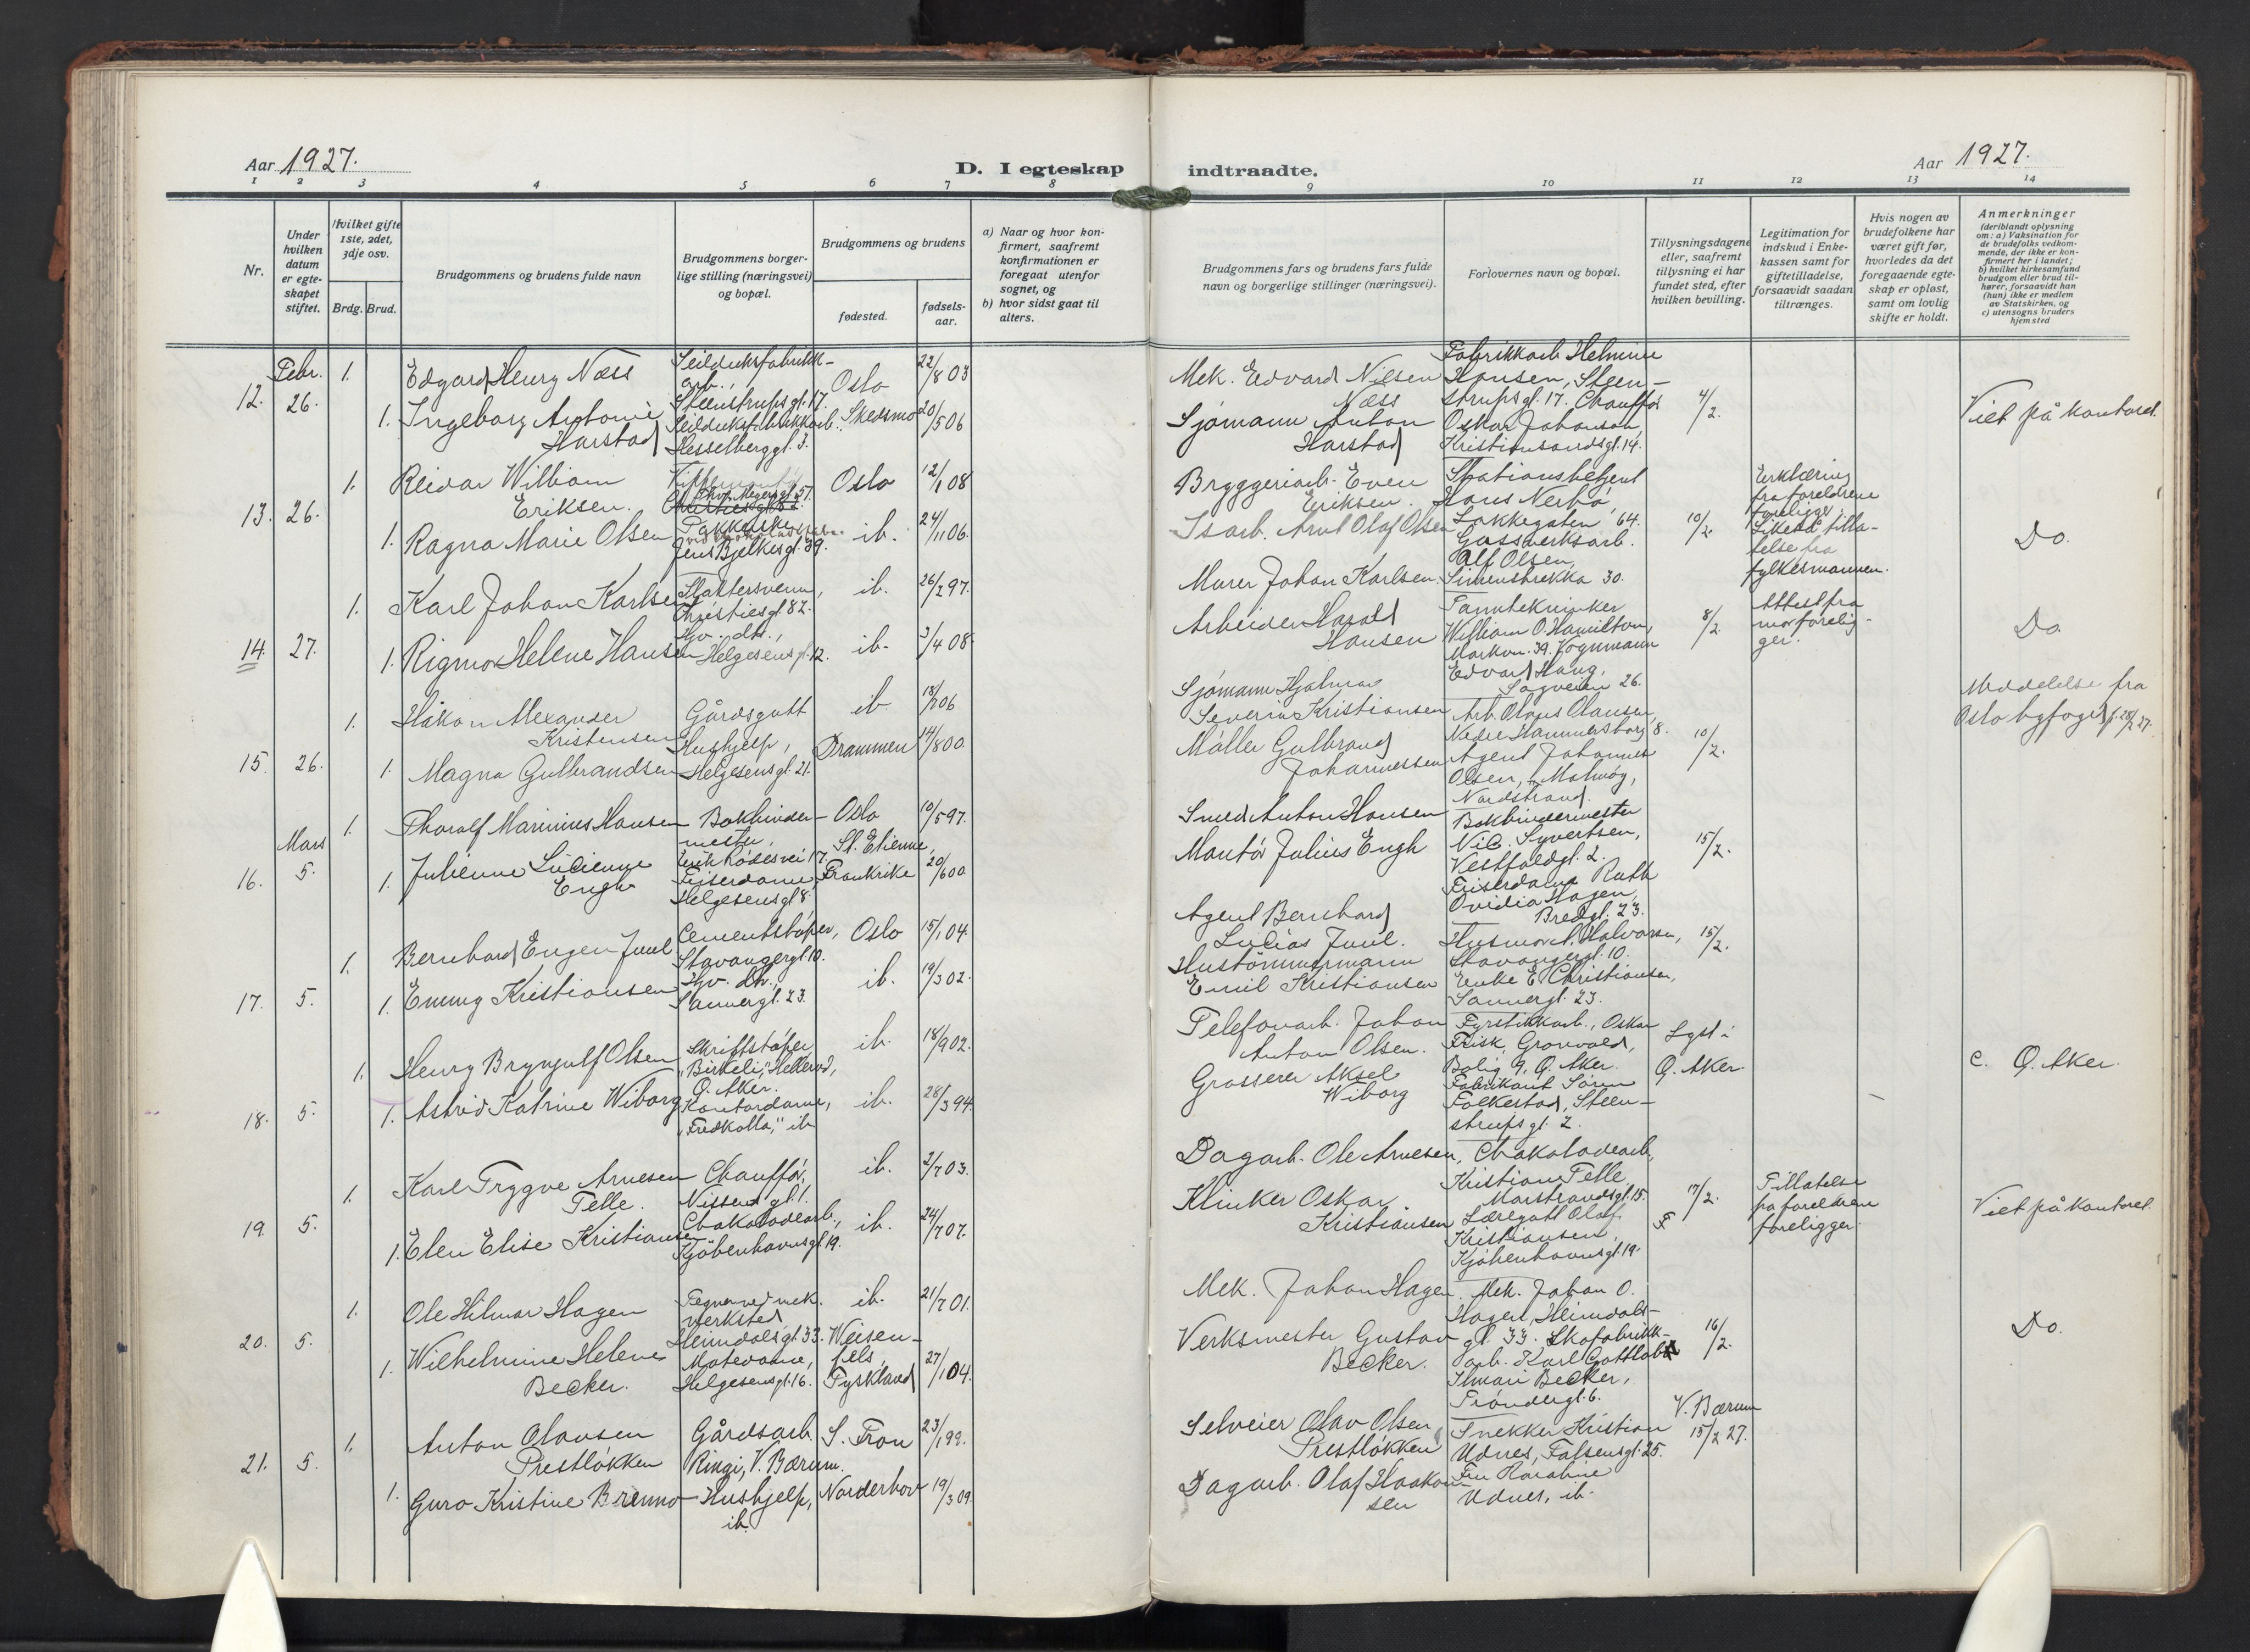 Aar 1927.
D. I egteskap indtraadte.
Aar 1927.
1 2 3 4 5 6 7 8 9 10 11 12 13 14
Nr.
Under hvilken datum er egteskapet stiftet.
Hvilket gifte 1ste, 2det, 3dje osv.
Brdg. Brud.
Brudgommens og brudens fulde navn
Brudgommens borgerlige stilling (næringsvei) og bopæl.
Brudgommens og brudens
fødested.
fødselsaar.
a) Naar og hvor konfirmert, saafremt konfirmationen er foregaat utenfor sognet, og
b) hvor sidst gaat til alters.
Brudgommens fars og brudens fars fulde navn og borgerlige stillinger (næringsvei).
Forlovernes navn og bopæl.
Tillysningsdagene eller, saafremt tillysning ei har fundet sted, efter hvilken bevilling.
Legitimation for indskud i Enkekassen samt for giftetilladelse, forsaavidt saadan tiltrænges.
Hvis nogen av brudefolkene har været gift før, hvorledes da det foregaaende egteskap er opløst, samt om lovlig skifte er holdt.
Anmerkninger
(deriblandt oplysning om: a) Vaksination for de brudefolks vedkommende, der ikke er konfirmert her i landet;
b) hvilket kirkesamfund brudgom eller brud tilhører, forsaavidt han (hun) ikke er medlem av Statskirken, og
c) utensogns bruders hjemsted
12. Febr. 26.
1. Edgard Henry Næss
Seilduksfabrikkarb., Steenstrupsgt. 17.
Oslo 22/8 03
Mek. Edvard Nilsen Næss
Fabrikkarb. Helmine Hansen, Steenstrupsgt. 17. Chauffør
4/2.
Viet på kontoret.
1. Ingeborg Antonie Harstad
Seilduksfabrikkarb. Hesselberggt. 3.
Skedsmo 20/5 06
Sjømann Anton Harstad
Oskar Johansen, Kristiansandsgt. 14.
13. 26.
1. Reidar William Eriksen.
Thv. Meyersgt. 51.
Oslo 12/1 08
Bryggeriarb. Even Eriksen.
Stationsbetjent Hans Nerbø, Lakkegaten 64.
10/2.
Erklæring fra foreldrene foreligger. Likeså tillatelse fra fylkesmannen.
Do.
1. Ragna Marie Olsen
Pakkerske
Jens Bjelkesgt. 39.
ib. 24/11 06.
Isarb. Arnt Olaf Olsen
Gassverksarb. Alf Olsen, Simenstrekka 30.
14. 27.
1. Karl Johan Karlsen
Slaktersvenn, Christiesgt 82.
ib. 26/2 97.
Murer Johan Karlsen.
Tanntekniker William O. Hamilton, Markvn. 39. Vognmann
8/2.
Attest fra mor foreligger.
Do.
1. Rigmor Helene Hansen
Hv. dtr., Helgesensgt. 12.
ib. 3/4 08.
Arbeider Harald Hansen
Edvard Haug, Sagveien 26.
15. 26.
1. Håkon Alexander Kristensen
Gårdsgutt
ib 18/ 06
Sjømann Hjalmar Severin Kristiansen
Arb. Olaus Olausen, Nedre Hammersborg 8.
10/2.
Meddelelse fra Oslo byfoged f. 28/2 27.
1. Magna Gulbrandsen
Hushjelp, Helgesensgt. 21.
Drammen 14/8 00.
Møller Gulbrand Johannessen
Agent Johannes Olsen, Malmøg, Nordstrand.
16. Mars 5.
1. Thoralf Marinius Hansen
Bokbindermester, Erik Rødesvei 17.
Oslo 10/5 97.
Smed Anton Hansen
Bokbindermester Nils Syvertsen, Vestfoldgt. 2.
15/2.
1. Julienne Lucienne Engh
Friserdame, Helgesensgt 8.
St. Etienne, Frankrike 20/6 00
Montør Julius Engh
Friserdame Ruth Ovidia Hagen, Bredgt. 23.
17. 5.
1. Bernhard Eugen Juul
Cementstøper, Stavangergt. 10.
Oslo 15/1 04.
Agent Bernhard Lucias Juul.
Husmor A. Halvorsen, Stavangergt. 10.
15/2.
1. Emmy Kristiansen
Hv. dtr., Sannergt. 23.
ib. 19/3 02.
Hustømmermann Emil Kristiansen
Enke E. Christiansen, Sannergt. 23.
18. 5.
1. Henry Brynjulf Olsen
Skriftstøper, "Birkeli," Hellerud, Ø. Aker.
ib. 18/9 02.
Telefonarb. Johan Anton Olsen.
Fyrstikkarb., Oskar Frisk, Grønvold, Bolig 9. Ø. Aker.
Lyst i Ø. Aker.
c. Ø. Aker.
1. Astrid Katrine Wiborg
Kontordame, "Fredkolla," ib
ib. 28/3 94.
Grosserer Aksel Wiborg
Fabrikant Søren Folkestad, Steenstrupsgt. 2.
19. 5.
1. Karl Trygve Arnesen Telle.
Chauffør, Nissensgt. 1.
ib. 2/7 03.
Dagarb. Ole Arnesen,
Chokoladearb. Kristian Telle, Marstrandsgt. 15.
17/2.
Tillatelse fra foreldrene foreligger.
Viet på kontoret.
1. Elen Elise Kristiansen
Chokoladearb., Kjøbenhavnsgt. 19.
ib. 24/7 07.
Klinker Oskar Kristiansen
Læregutt Olaf Kristiansen, Kjøbenhavnsgt. 19.
F
20. 5.
1. Ole Hilmar Hagen
Tegner ved mek. verksted Heimdalsgt. 33.
ib. 21/7 01.
Mek. Johan Hagen.
Mek. Johan O. Hagen, Heimdalsgt. 33. Skofabrikkarb. Karl Gottlob
16/2.
Do.
1. Wilhelmine Helene Becker.
Motedame, Helgesensgt. 16.
Weisenfels, Tyskland 27/1 04.
Verksmester Gustav Becker.
Ilmari Becker, Trøndergt. 6.
21. 5.
1. Anton Olausen Prestløkken
Gårdsarb. Ringi, V. Bærum.
S. Fron 23/1 99.
Selveier Olav Olsen Prestløkken
Snekker Kristian Udnes, Falsensgt. 25.
V. Bærum 15/2 27.
1. Guro Kristine Brenno
Hushjelp, ib.
Norderhov 19/3 09.
Dagarb. Olaf Haakonsen
Fru Karoline Udnes, ib.